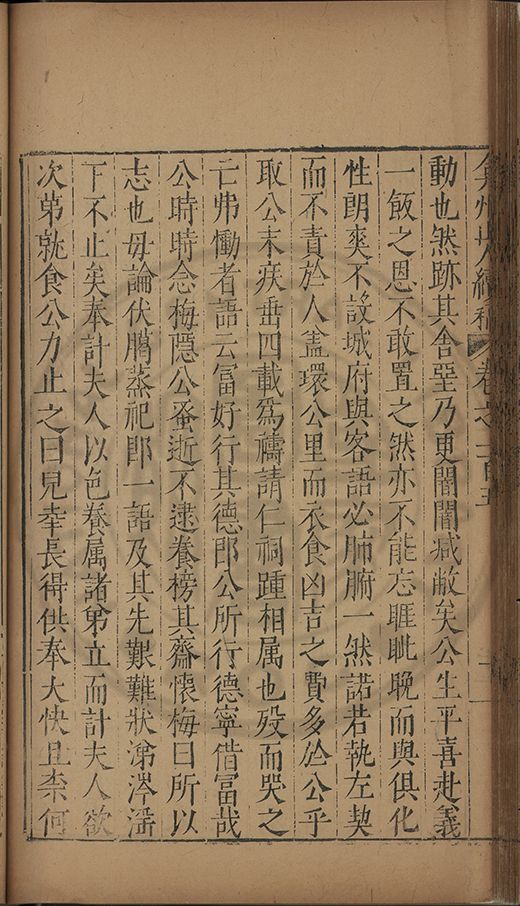 弇州山人續稿卷之一百五
動也然跡其舍堊乃更闇闇臧敝矣公生平喜赴義
一飯之恩不敢置之然亦不能忘睚眦晚而與俱化
性朗爽不設城府與客語必肺腑一然諾若執左契
而不責於人蓋環公里而衣食凶吉之費多於公乎
取公末疾垂四載爲禱請仁祠踵相属也歿而哭之
亡弗慟者語云冨好行其德郎公所行德寧借冨哉
公時時念梅隱公蚤逝不逮養榜其齋懷梅曰所以
志也毋論伏臈蒸祀即一語及其先艱難狀涕涔淫
下不止矣奉計夫人以色養属諸弟立而計夫人欲
次第就食公力止之曰兒幸長得供奉大快且柰何